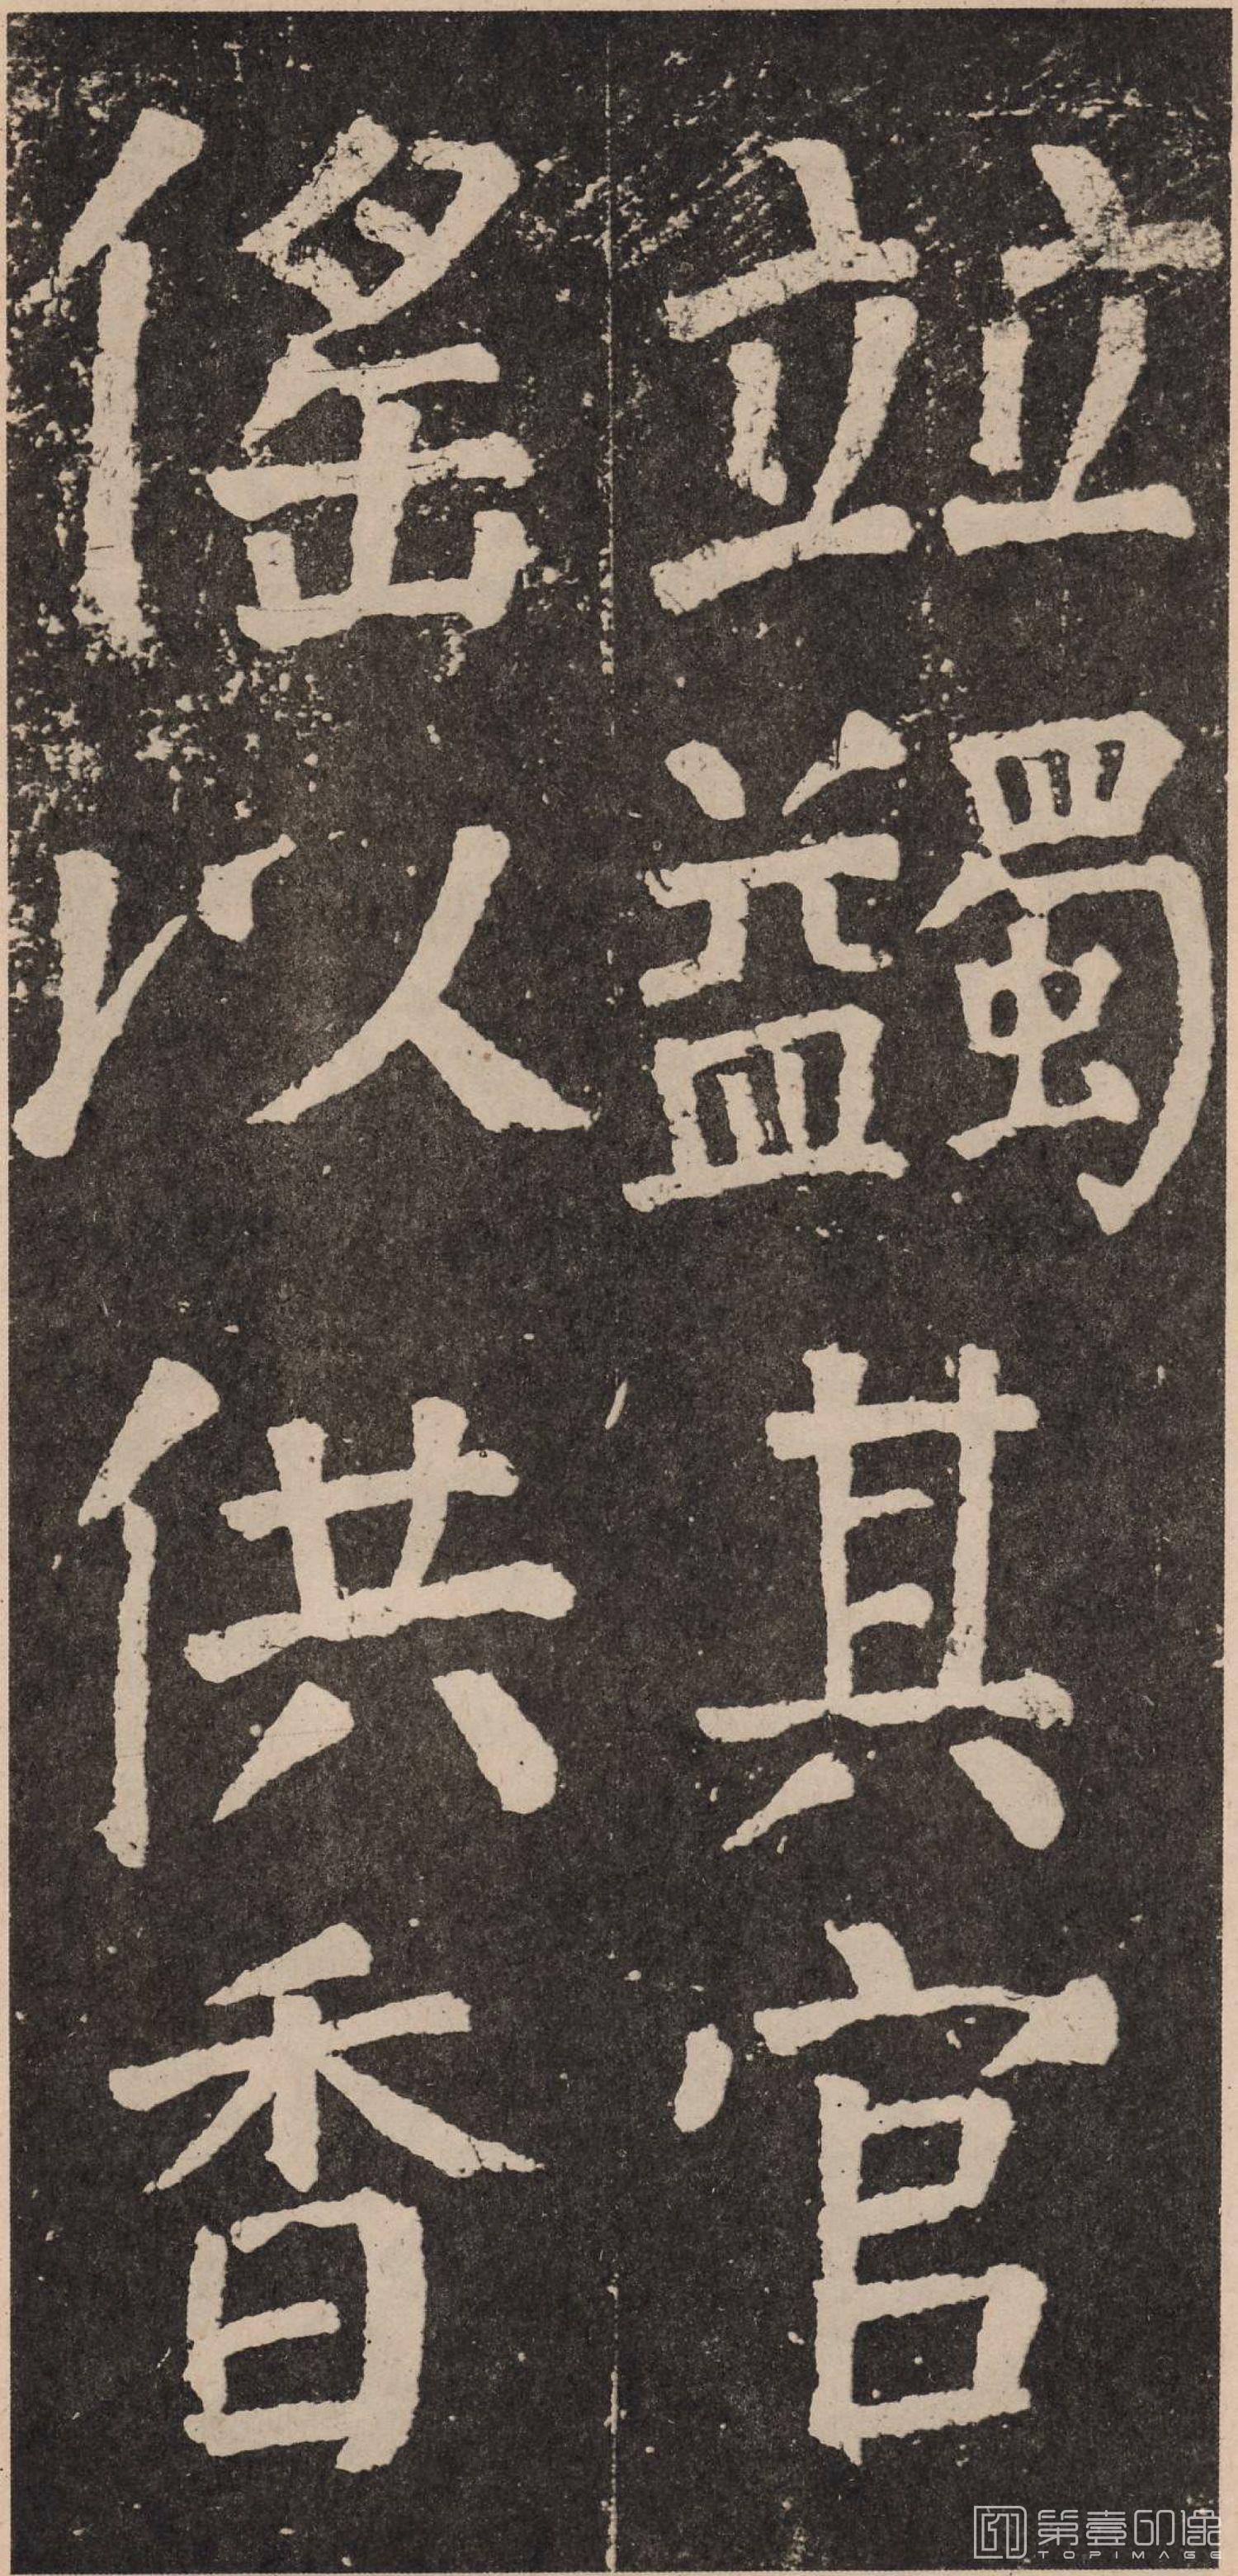 竝蠲其官
傜以供香
第壹印像
TOPIMAGE